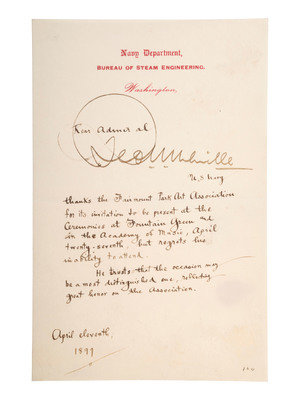 Navy Department,
BUREAU OF STEAM ENGINEERING,
Washington,
Rear Admiral
Geo W Melville
U.S. Navy
thanks the Fairmount Park Art Association
for its invitation to be present at the
Ceremonies at Fountain Green and
in the Academy of Music, April
twenty-seventh, but regrets his
inability to attend.
He trusts that the occasion may
be a most distinguished one, reflecting
great honor on the Association.
April eleventh,
1899